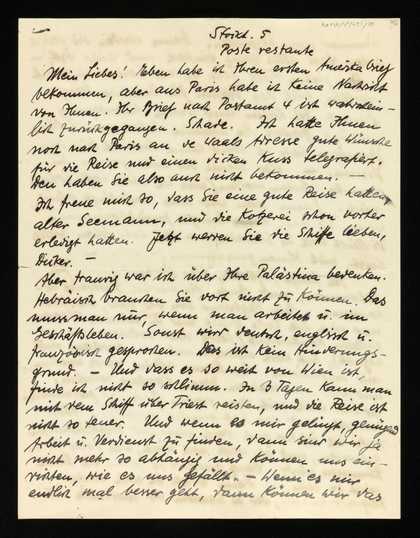 Stockh. 5
Poste restante
Mein Liebes! Eben habe ich Ihren ersten Amerika Brief
bekommen, aber aus Paris habe ich keine Nachricht
von Ihnen. Ihr Brief nach Postamt 4 ist wahrschein-
lich zurückgegangen. Schade. Ich hatte Ihnen
noch nach Paris an de Waals Adresse gute Wünsche
für die Reise und einen dicken Kuss telegrafiert.
Den haben Sie also auch nicht bekommen. —
Ich freue mich so, dass Sie eine gute Reise hatten,
alter Seemann, und die Kotzerei schon vorher
erledigt hatten. Jetzt werden Sie die Schiffe lieben,
Dicker. —
Aber traurig war ich über Ihre Palästina bedenken.
Hebräisch brauchen Sie dort nicht zu können. Das
muss man nur, wenn man arbeitet u. im
Geschäftsleben. Sonst wird deutsch, englisch u.
französisch gesprochen. Das ist kein Hinderungs-
grund. — Und dass es so weit von Wien ist,
finde ich nicht so schlimm. In 3 Tagen kann man
mit dem Schiff über Triest reisen, und die Reise ist
nicht so teuer. Und wenn es mir gelingt, genügend
Arbeit u. Verdienst zu finden, dann sind wir ja
nicht mehr so abhängig und können uns ein-
richten, wie es uns gefällt. — Wenn es mir
endlich mal besser geht, dann können wir das